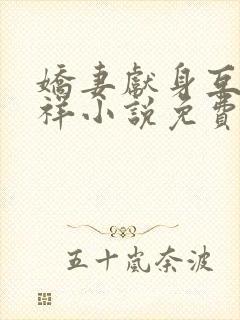 嬌妻獻身互
祥小說免費
五十嵐奈波